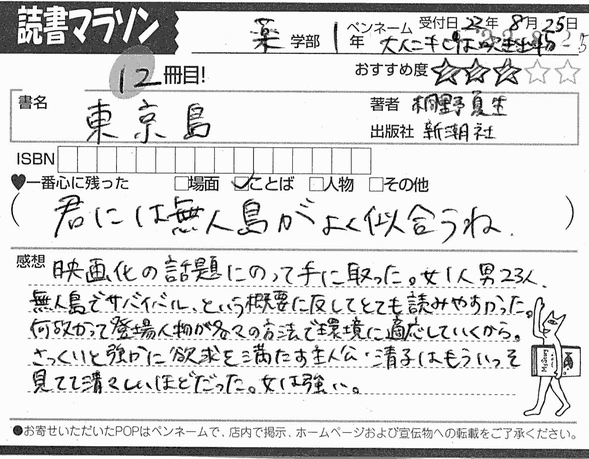 読書マラソン
受付日 22年 8月 25日
薬 学部 1 年 ペンネーム
12 冊目!
おすすめ度 ★★★☆☆
書名 東京島
著者 桐野夏生
出版社 新潮社
ISBN
♥一番心に残った □場面 ☑ことば □人物 □その他
(君には無人島がよく似合うね.)
感想 映画化の話題にのって手に取った。女1人男23人、
無人島でサバイバル、という概要に反してとても読みやすかった。
何故かって登場人物が各々の方法で環境に適応していくから。
さっくいと強かに欲求を満たす主人公・清子はもういっそ
見てて清々しいほどだった。女は強い。
●お寄せいただいたPOPはペンネームで、店内で掲示、ホームページおよび宣伝物への転載をご了承ください。